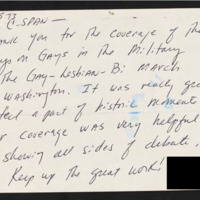 C-SPAN —
ank you for the coverage of the
gs on Gays in the Military
The Gay-Lesbian-Bi March
Washington. It was really gre
feel a part of historic moments
r coverage was very helpful
showing all sides of debate.
Keep up the great work!